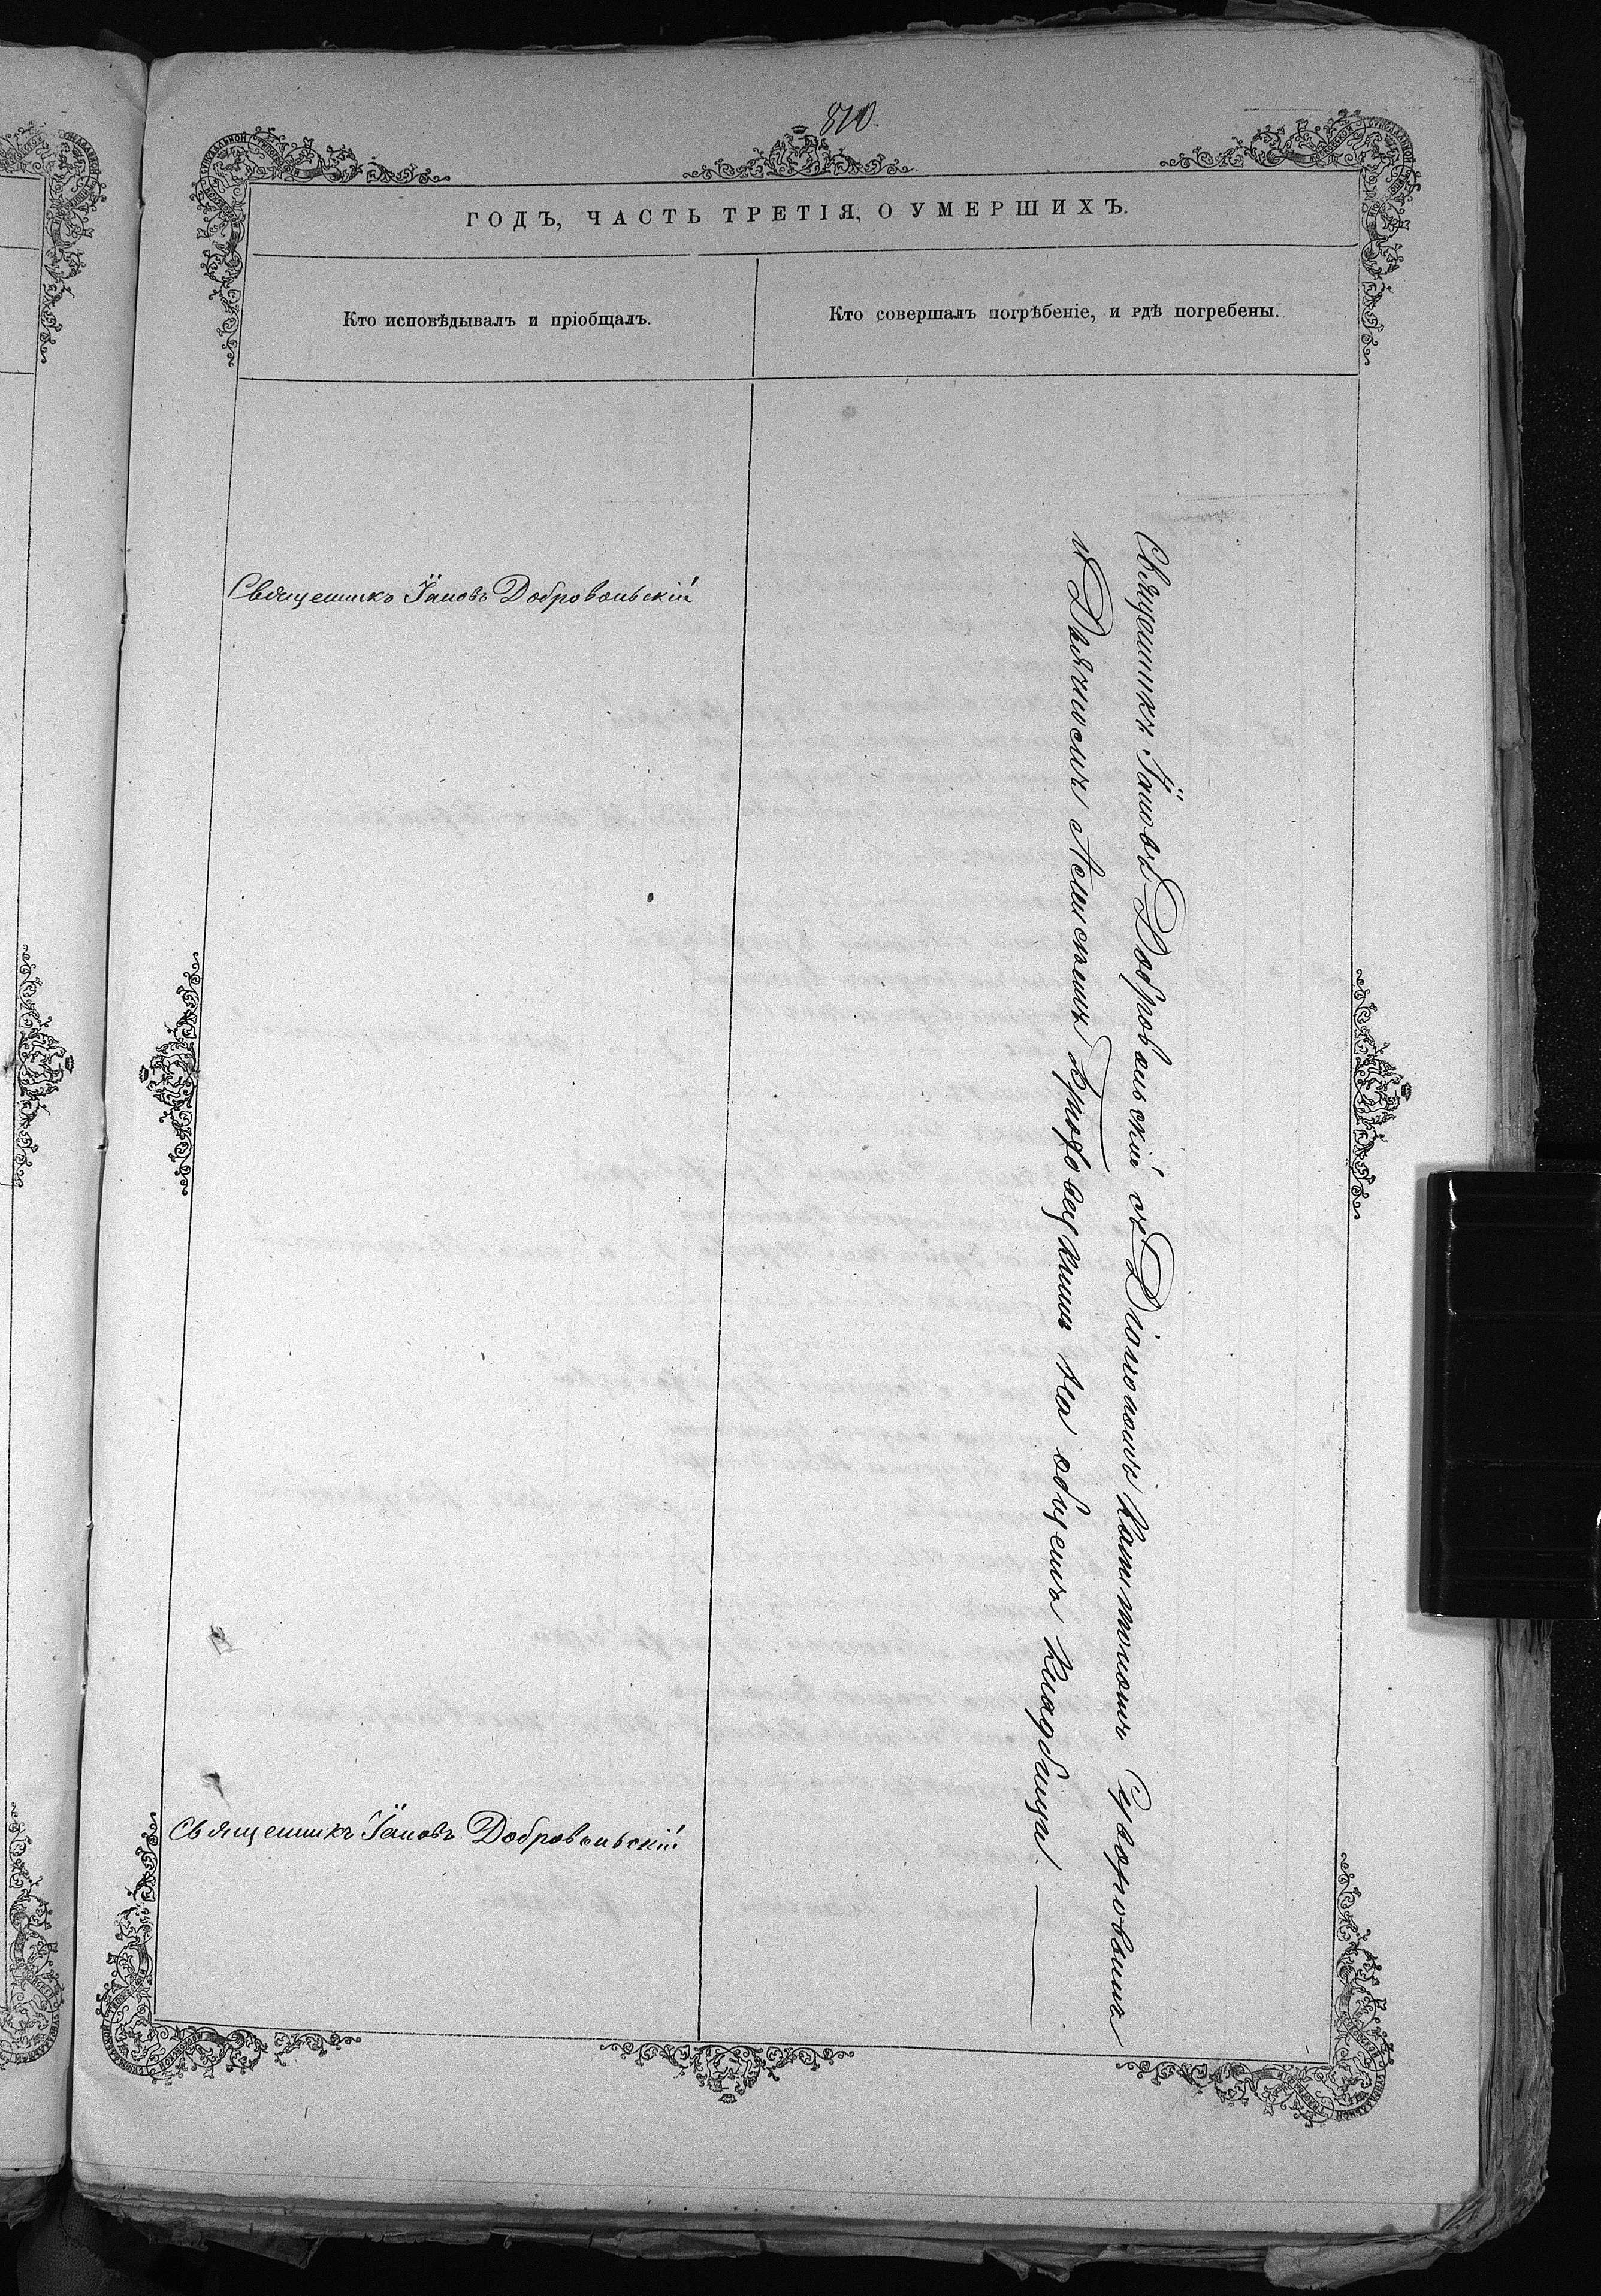 810.
ГОДЪ, ЧАСТЬ ТРЕТІЯ, О УМЕРШИХЪ.
Кто исповѣдывалъ и пріобщалъ.
Кто совершалъ погрѣбеніе, и гдѣ погребены.
Священникъ Іаковъ Добровольскій
Священникъ Іаковъ Добровольскій съ Діакономъ Капитономъ
и Дьячкомъ на общемъ кладбищѣ
Священникъ Іаковъ Добровольскій